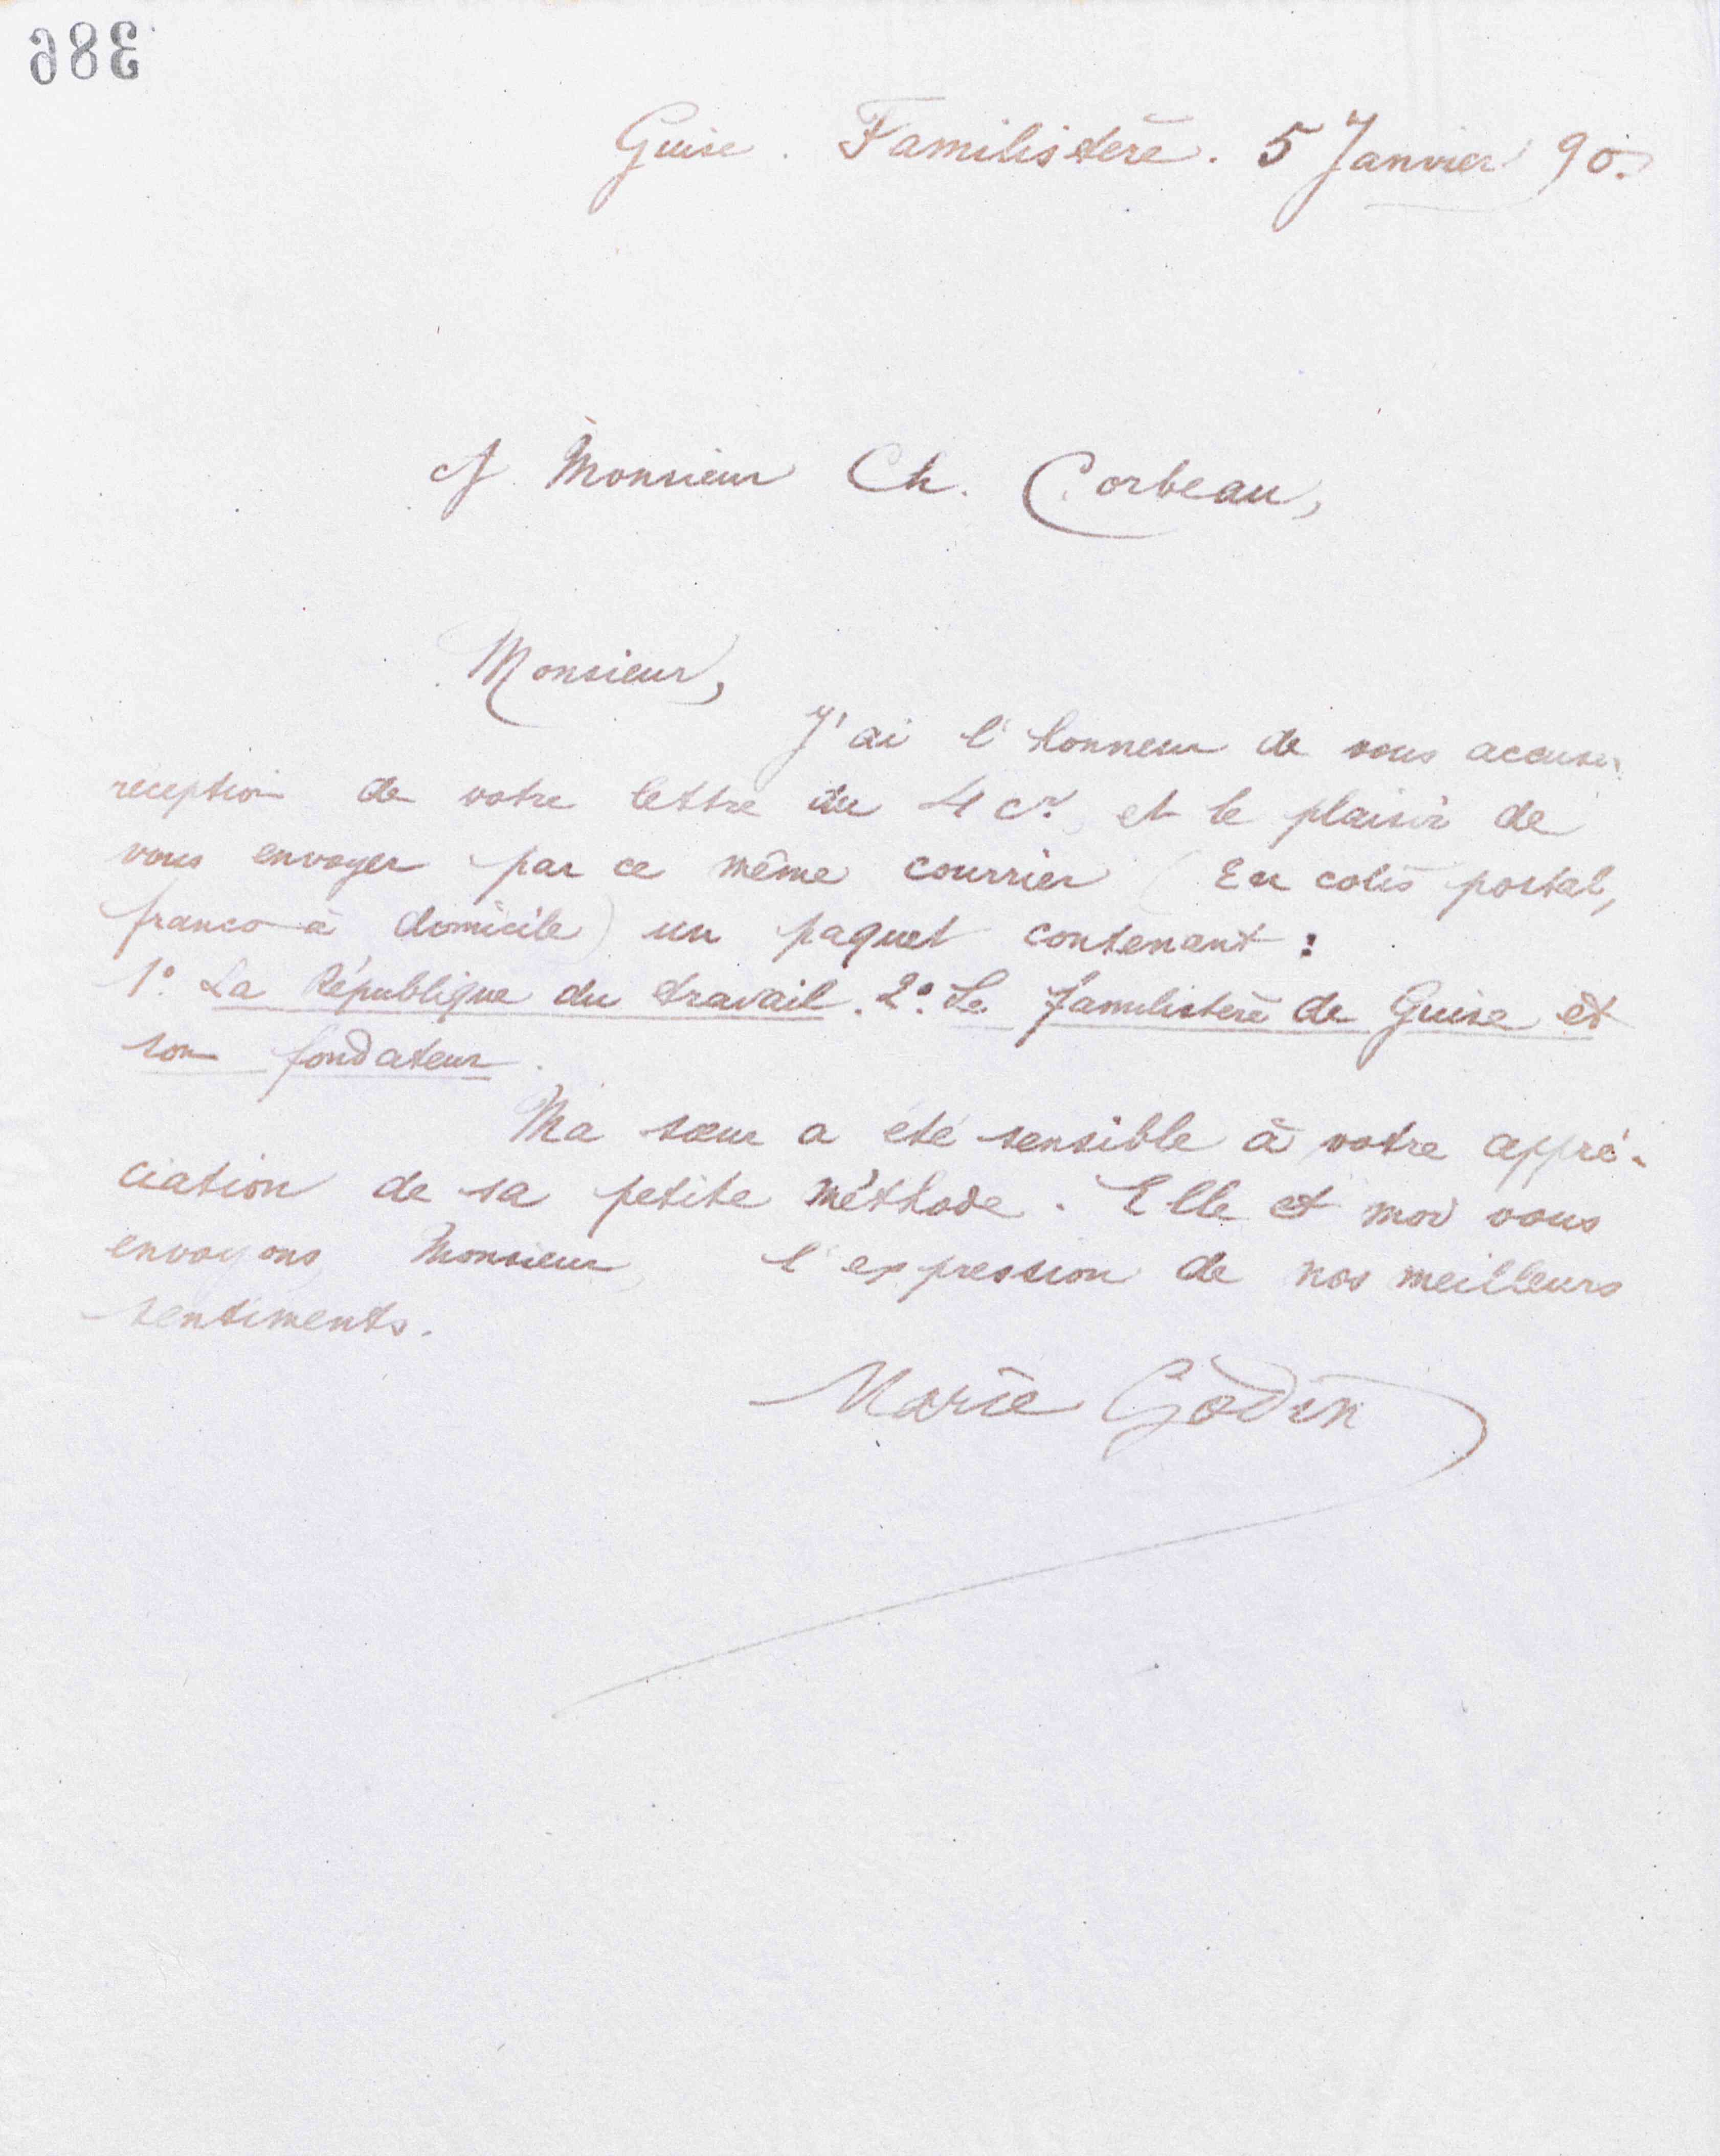 386
Guise. Familistère. 5 Janvier 90.
A Monsieur Ch. Corbeau,
Monsieur,
J'ai l'honneur de vous accuser
réception de votre lettre du 4 ct. et le plaisir de
vous envoyer par ce même courrier (En colis postal,
franco à domicile) un paquet contenant :
1° La République du travail. 2° Le familistère de Guise et
son fondateur.
Ma sœur a été sensible à votre appré-
ciation de sa petite méthode. Elle et moi vous
envoyons, Monsieur, l'expression de nos meilleurs
sentiments.
Marie Godin